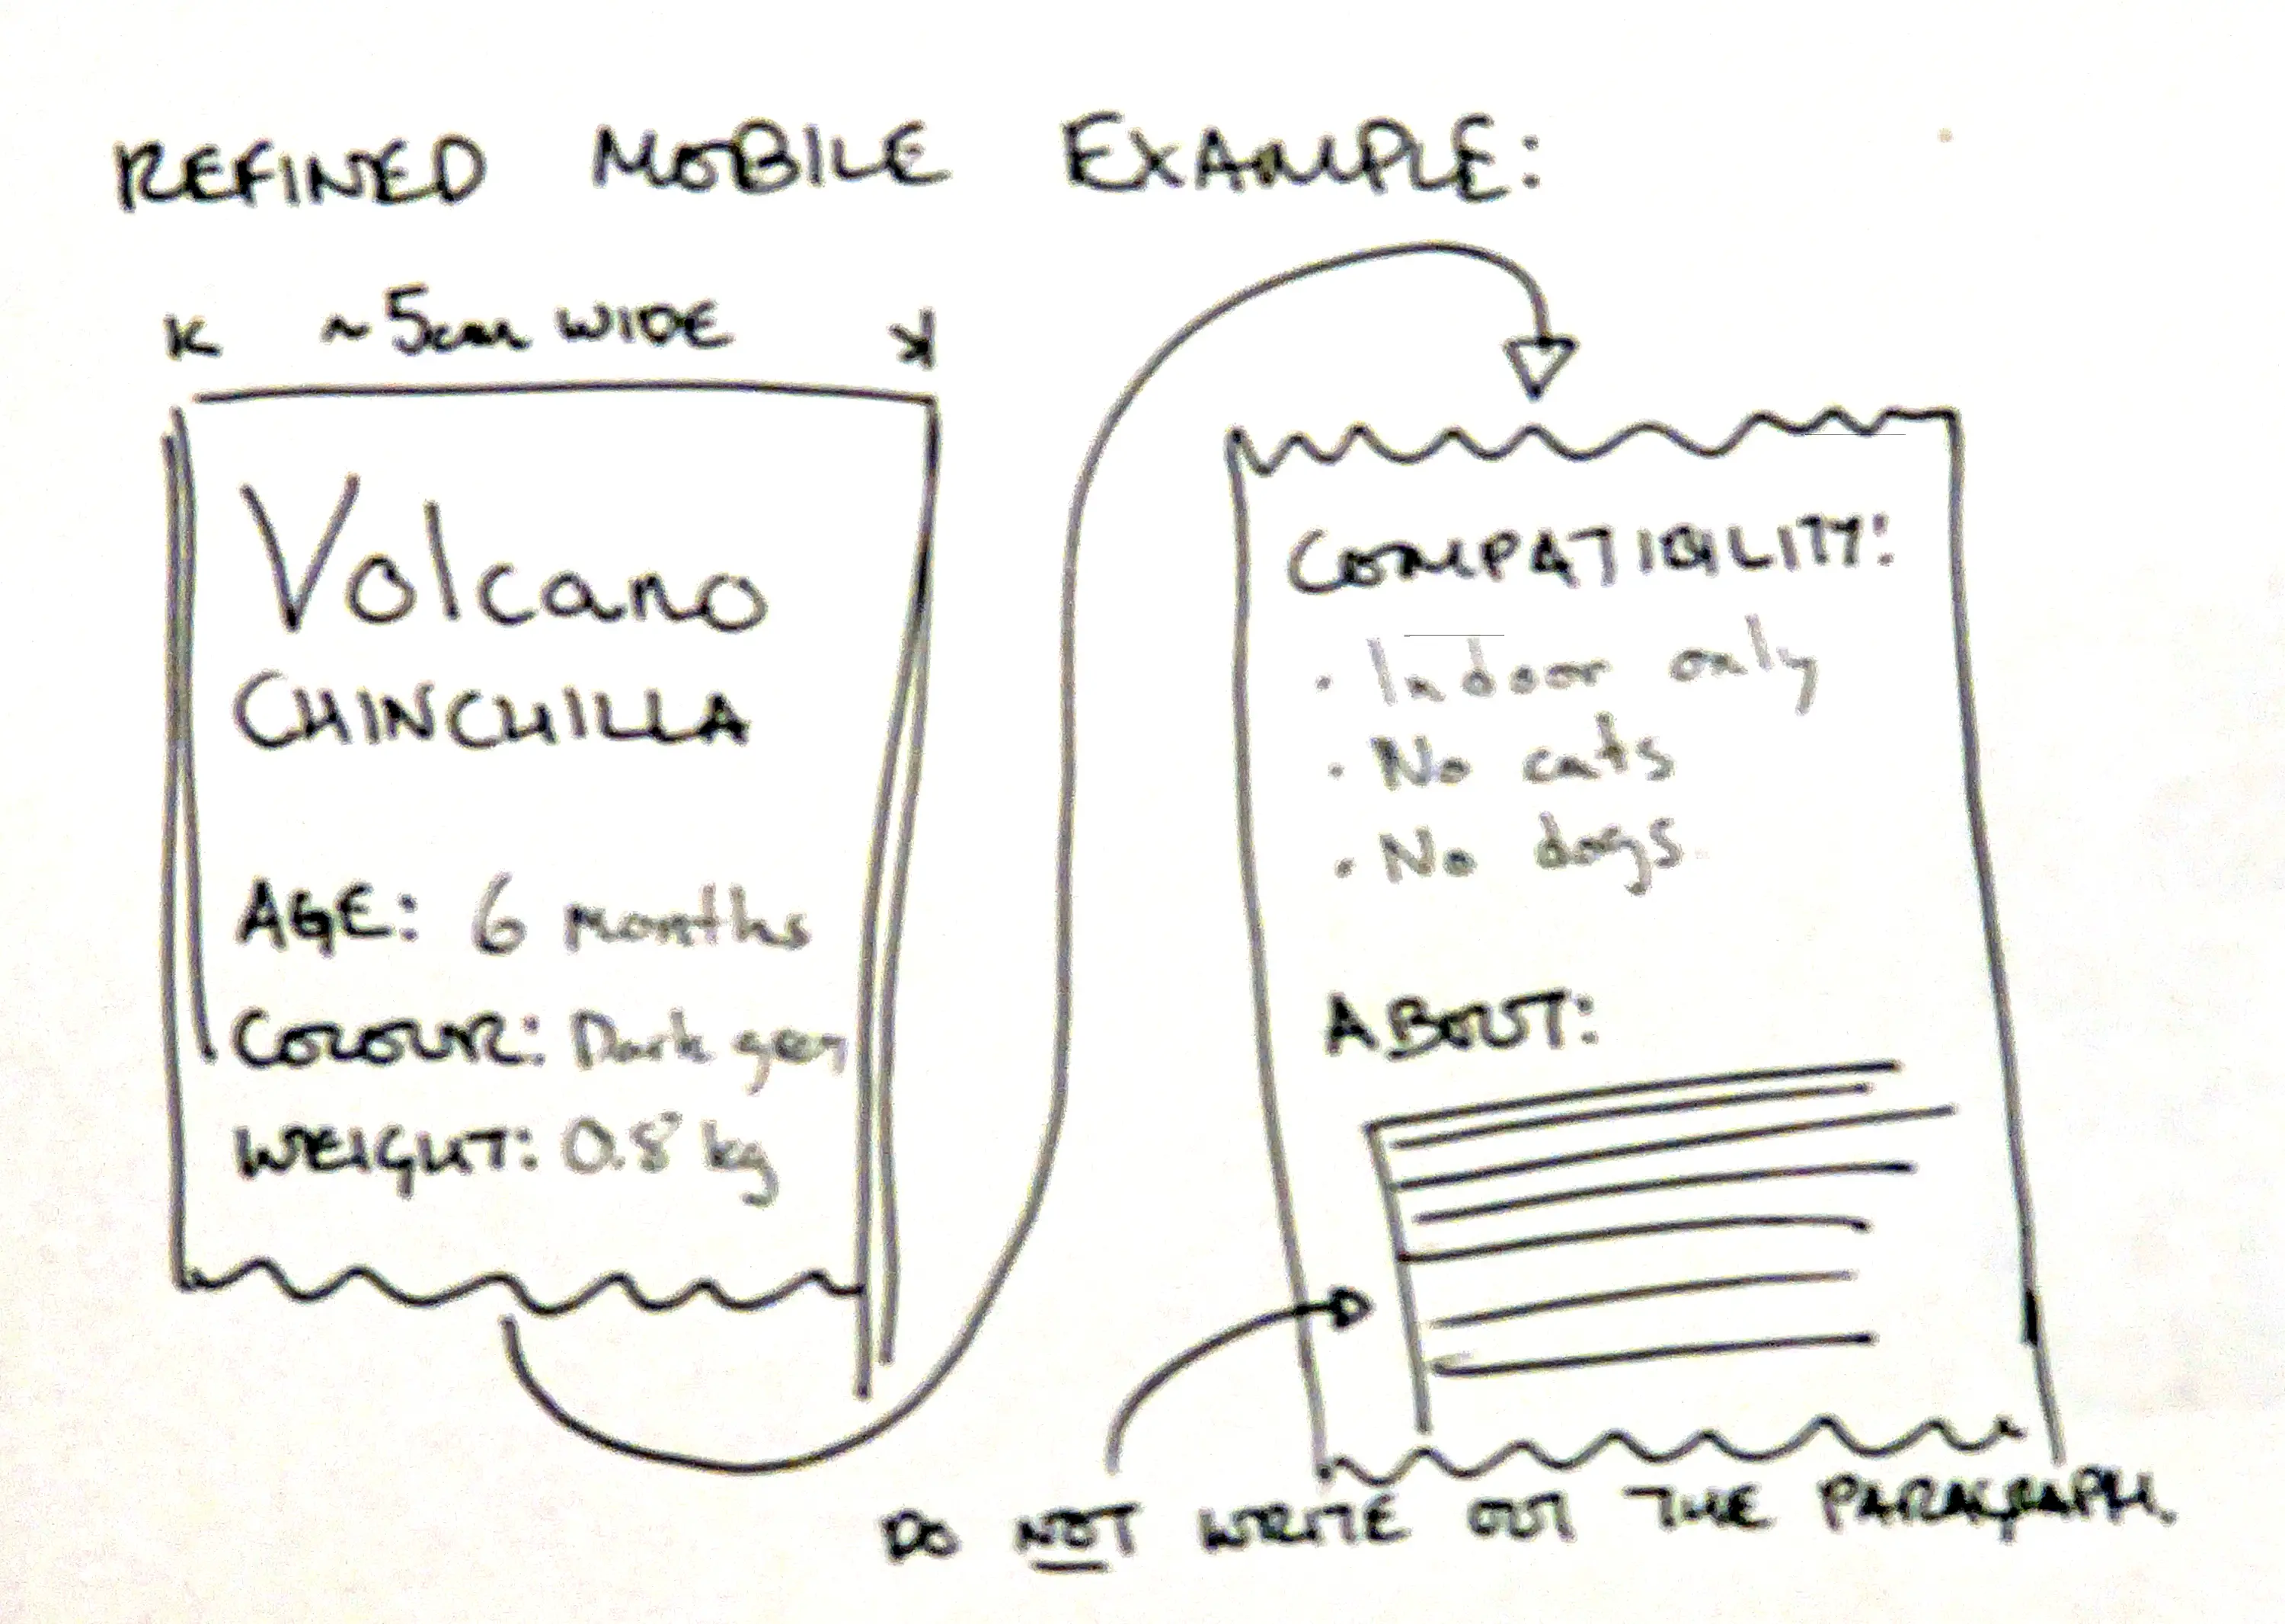 REFINED MOBILE EXAMPLE:
~5cm WIDE
Volcano
CHINCHILLA
AGE: 6 months
COLOUR: Dark grey
WEIGHT: 0.8 kg
COMPATIBILITY:
· Indoor only
· No cats
· No dogs
ABOUT:
DO NOT WRITE OUT THE PARAGRAPH.